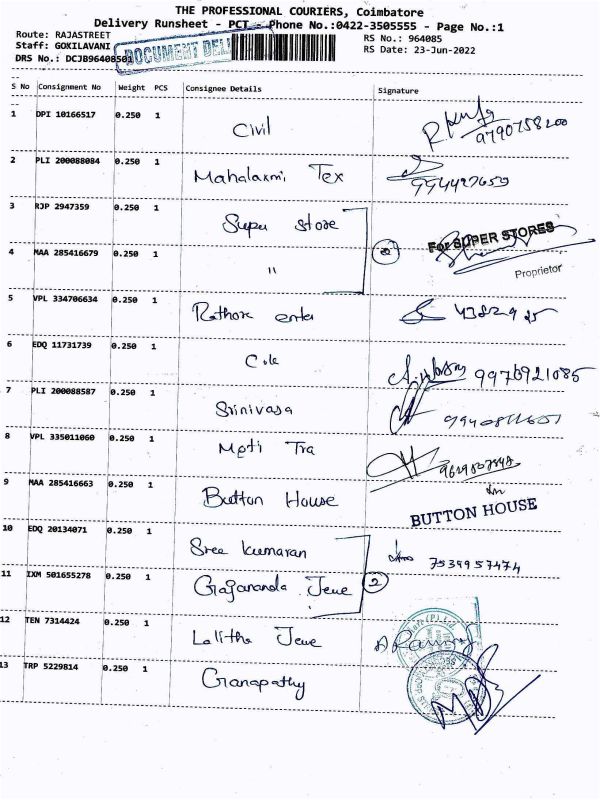 THE PROFESSIONAL COURIERS, Coimbatore
Delivery Runsheet - PCT - Phone No.:0422-3505555 - Page No.:1
Route: RAJASTREET RS No.: 964085
Staff: GOKILAVANI RS Date: 23-Jun-2022
DRS No.: DCJB96408501 DOCUMENT DEL
S No Consignment No Weight PCS Consignee Details Signature
1 DPI 10166517 0.250 1 Civil 9790758200
2 PLI 200088084 0.250 1 Mahalaxmi Tex
3 RJP 2947359 0.250 1 Super store For SUPER STORES
4 MAA 285416679 0.250 1 " 2 Proprietor
5 VPL 334706634 0.250 1 Rathore enter
6 EDQ 11731739 0.250 1
7 PLI 200088587 0.250 1 Srinivasa
8 VPL 335011060 0.250 1 Moti Tra
9 MAA 285416663 0.250 1 Button House BUTTON HOUSE
10 EDQ 20134071 0.250 1 Sree kumaran 7539957474
11 IXM 501655278 0.250 1 Gajananda Jewe 2
12 TEN 7314424 0.250 1 Lalitha Jewe
13 TRP 5229814 0.250 1 Ganapathy